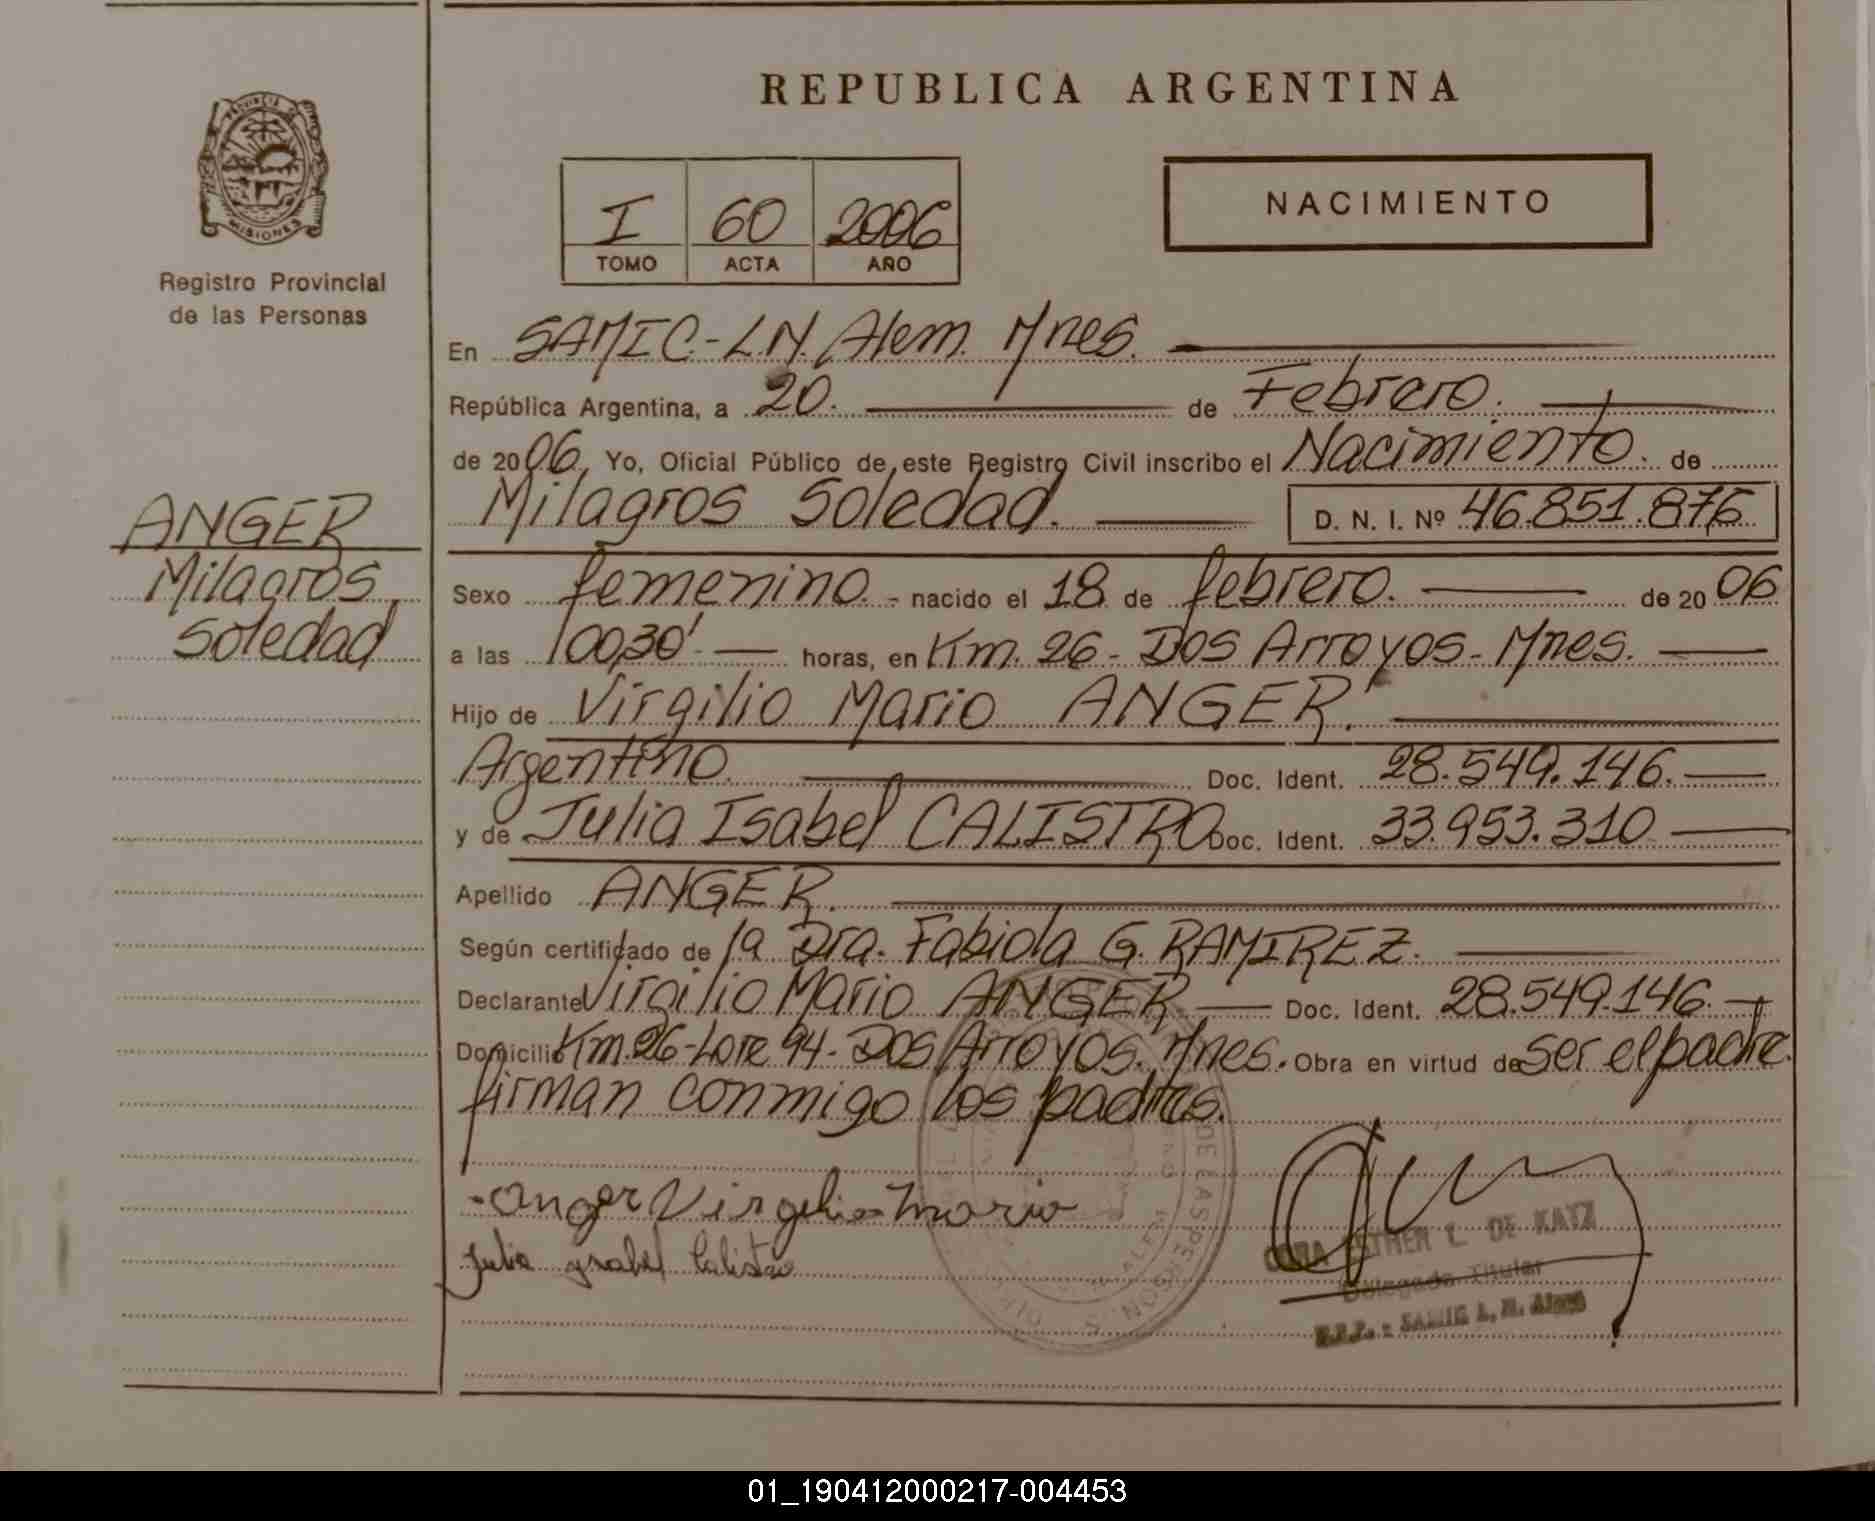 REPUBLICA ARGENTINA
PROVINCIA DE
MISIONES
Registro Provincial
de las Personas
I 60 2006
TOMO ACTA AÑO
NACIMIENTO
En SAMIC-L.N. Alem. Mnes.
República Argentina, a 20. de Febrero.
de 2006, Yo, Oficial Público de este Registro Civil inscribo el Nacimiento. de
Milagros Soledad. D. N. I. Nº 46.851.876
ANGER
Milagros
Soledad
Sexo femenino - nacido el 18 de febrero. de 2006
a las 00,30' horas, en Km. 26 - Dos Arroyos - Mnes.
Hijo de Virgilio Mario ANGER.
Argentino. Doc. Ident. 28.549.146.
y de Julia Isabel CALISTRO Doc. Ident. 33.953.310
Apellido ANGER.
Según certificado de la Dra. Fabiola G. RAMIREZ.
Declarante Virgilio Mario ANGER Doc. Ident. 28.549.146.
Domicilio Km. 26-Lote 94- Dos Arroyos. Mnes. Obra en virtud de ser el padre.
firman conmigo los padres.
Anger Virgilio Mario
Julia Ysabel Calistro
ESTHER L. DE KATZ
Delegado Titular
R.P.P. - SAMIC L. N. Alem
DE LAS PERSONAS
01_190412000217-004453